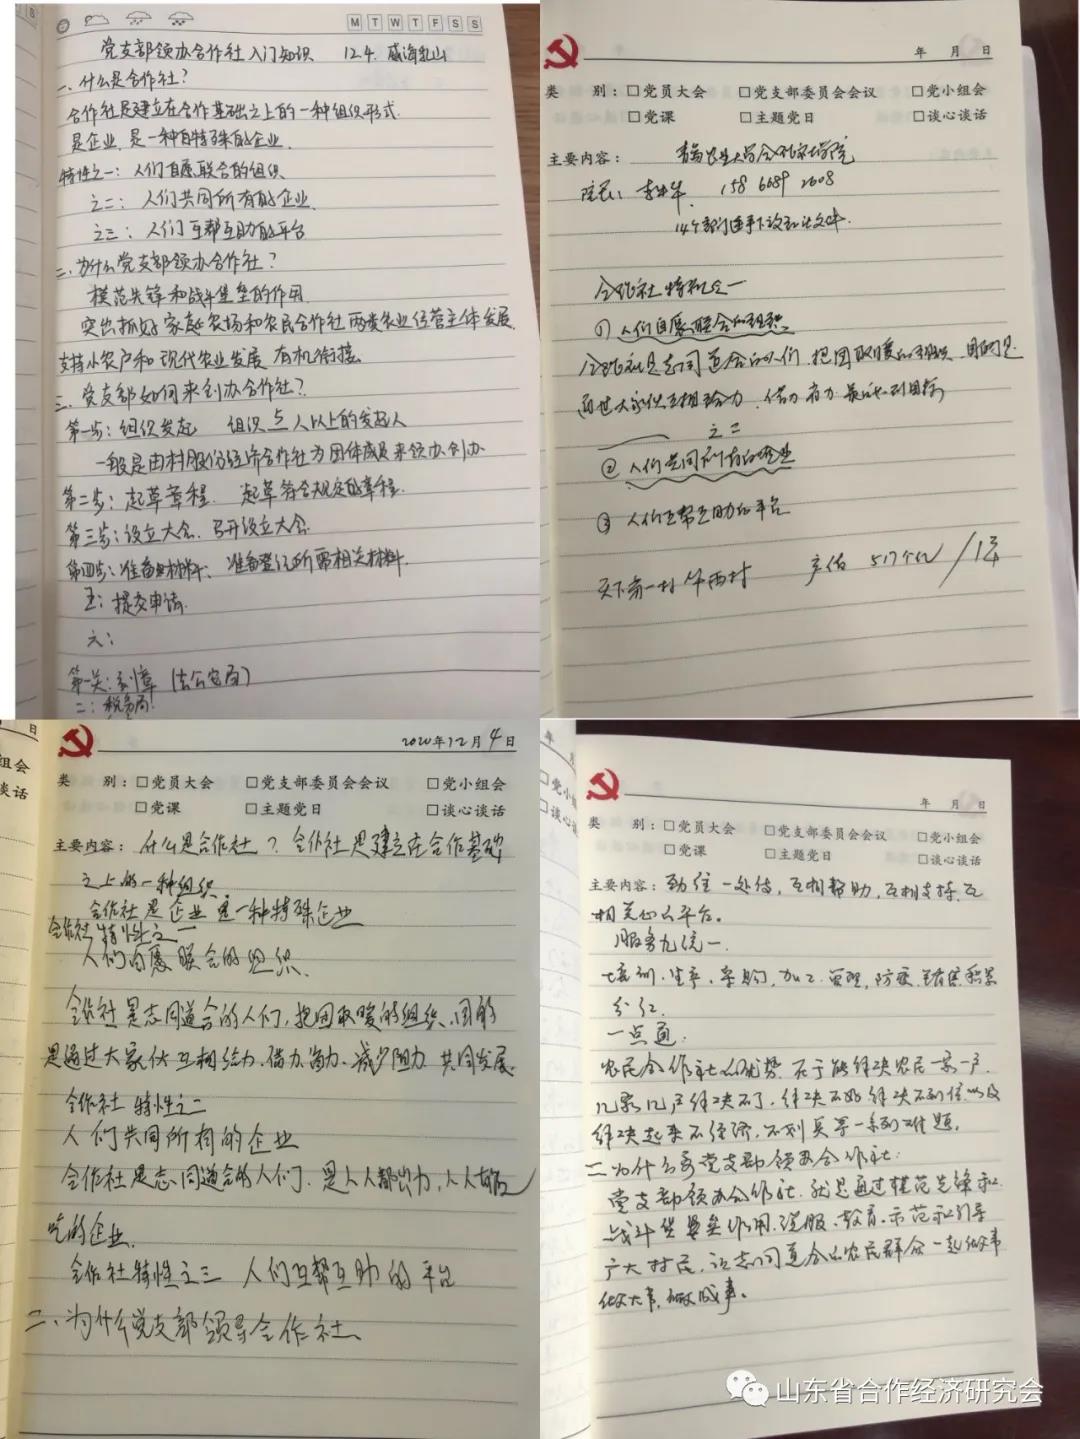 M T W T F S S
党支部领办合作社入门知识 12.4. 威海乳山
一、什么是合作社?
合作社是建立在合作基础之上的一种组织形式.
是企业,是一种自特殊的企业.
特性之一:人们自愿联合的组织
之二:人们共同所有的企业
之三:人们互帮互助的平台
二、为什么党支部领办合作社?
模范先锋和战斗堡垒的作用
突出抓好家庭农场和农民合作社两类农业经营主体发展
支持小农户和现代农业发展有机衔接
三、党支部如何来创办合作社?
第一步:组织发起 组织五人以上的发起人
一般是由村股份经济合作社为团体成员来领办创办
第二步:起草章程. 起草符合规定的章程.
第三步:设立大会. 召开设立大会
第四步:准备材料、准备登记所需相关材料
五:提交申请.
六:
第一关:刻章(去公安局)
二:税务局!
年 月 日
类 别:□党员大会 □党支部委员会会议 □党小组会
□党课 □主题党日 □谈心谈话
主要内容: 青岛农业大学合作社学院
院长:李 158 6689 2608
14个部门连手下
合作社特性之一
① 人们自愿联合的组织
合作社是志同道合的人们,把团取暖的组织,目的是
通过大家伙互相给力、借力
之二
② 人们共同所有的企业
③ 人们互帮互助的平台
天下第一村 产值 517个亿
2020年12月4日
类 别:□党员大会 □党支部委员会会议 □党小组会
□党课 □主题党日 □谈心谈话
主要内容:什么是合作社?合作社是建立在合作基础
之上的一种组织
合作社是企业 是一种特殊企业
合作社特性之一
人们自愿联合的组织、
合作社是志同道合的人们,把团取暖的组织、目的
是通过大家伙互相给力、借力、省力、减少阻力、共同发展
合作社特性之二
人们共同所有的企业
合作社是志同道合的人们、是人人都出力,人人有
吃的企业.
合作社特性之三 人们互帮互助的平台
二、为什么党支部领导合作社、
年 月 日
类 别:□党员大会 □党支部委员会会议 □党小组会
□党课 □主题党日 □谈心谈话
主要内容:劲往一处使,互相帮助,互相支持,互
相关心的平台。
服务九统一.
培训,生产,采购,加工,管理,防疫,销售,积累
分红.
一点通:
农民合作社的优势,在于能解决农民一家一户
几家几户解决不了,解决不好解决不到位以及
解决起来不经济,不划算等一系列难题.
二、为什么要党支部领办合作社:
党支部领办合作社,就是通过模范先锋和
战斗堡垒作用,说服、教育、示范和引导
广大村民,让志同道合的农民群众一起做事
做大事,做成事。
山东省合作经济研究会